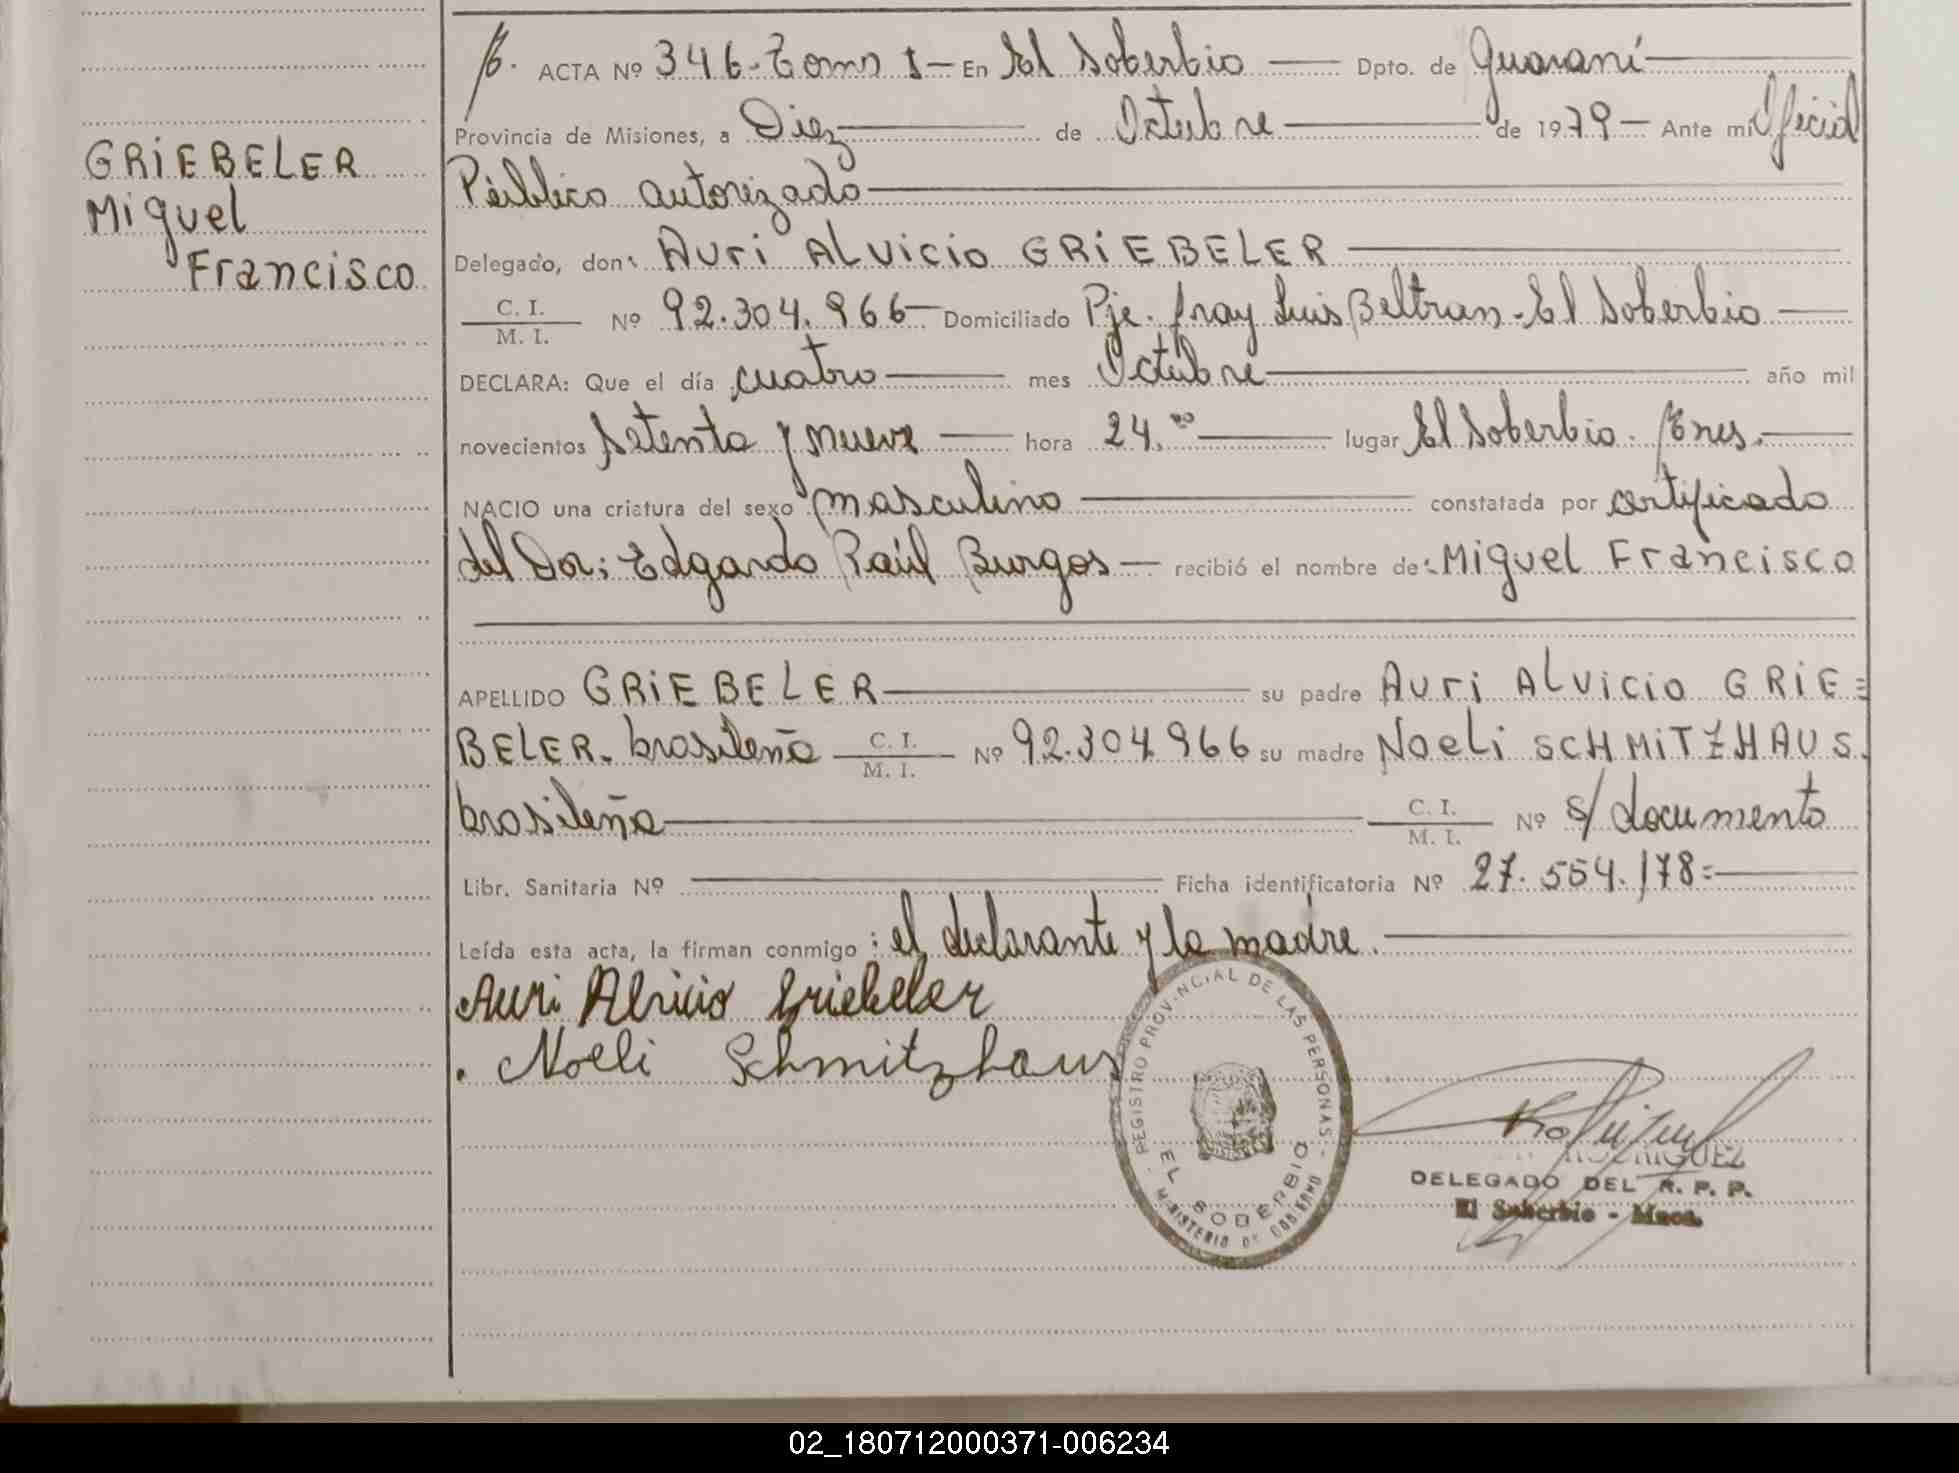 GRIEBELER
Miguel
Francisco
ACTA Nº 346-Tomo I- En El Soberbio Dpto. de Guaraní
Provincia de Misiones, a Diez de Octubre de 1979 Ante mi Oficial
Público autorizado
Delegado, don: Auri Alvicio GRIEBELER
C. I.
M. I.
Nº 92.304.966 Domiciliado Pje. fray Luis Beltran-El Soberbio
DECLARA: Que el día cuatro mes Octubre año mil
novecientos setenta y nueve hora 24.00 lugar El Soberbio.
NACIO una criatura del sexo masculino constatada por certificado
del Dor: Edgardo Raúl Burgos recibió el nombre de: Miguel Francisco
APELLIDO GRIEBELER su padre Auri Alvicio GRIE=
BELER. brasileño C. I.
M. I.
Nº 92.304.966 su madre Noeli SCHMITZHAUS.
brasileña C. I.
M. I.
Nº s/documento
Libr. Sanitaria Nº Ficha identificatoria Nº 27.554.178=
Leída esta acta, la firman conmigo: el declarante y la madre.
Auri Alvicio Griebeler
Noeli Schmitzhaus
REGISTRO PROVINCIAL DE LAS PERSONAS
EL SOBERBIO
MINISTERIO DE GOBIERNO
RODRIGUEZ
DELEGADO DEL R. P. P.
El Soberbio - Mnes.
02_180712000371-006234